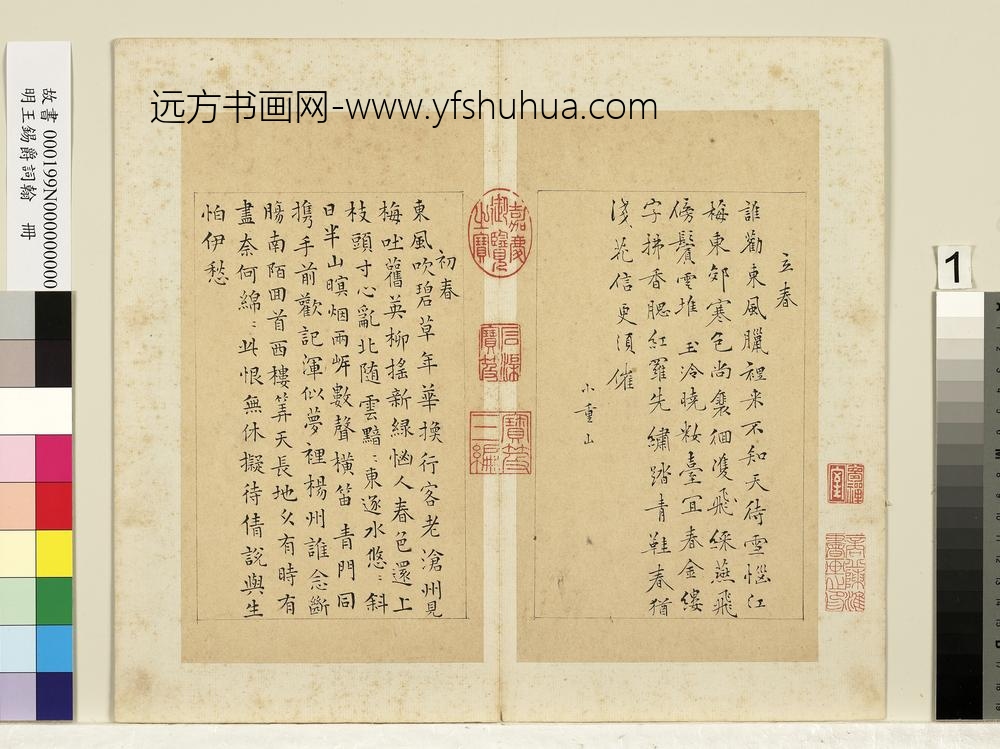 远方书画网-www.yfshuhua.com
故書 000199N000000000
明王錫爵詞翰 冊
1
立春
誰勸東風臘裡来不知天待雪惱江
梅東郊寒色尚徘徊雙飛綵燕飛
傍鬢雲堆 玉冷曉粧臺宜春金縷
字拂香腮紅羅先繡踏青鞋春猶
淺花信更須催
小重山
初春
東風吹碧草年華換行客老滄州見
梅吐舊英柳搖新綠惱人春色還上
枝頭寸心亂北随雲黯〻東逐水悠〻斜
日半山暝烟兩岍數聲橫笛 青門同
携手前歡記渾似夢裡楊州誰念斷
腸南陌回首西樓筭天長地久有時有
盡奈何綿〻此恨無休擬待倩說與生
怕伊愁
嘉慶御覽之寶
石渠寶笈
寶笈三編